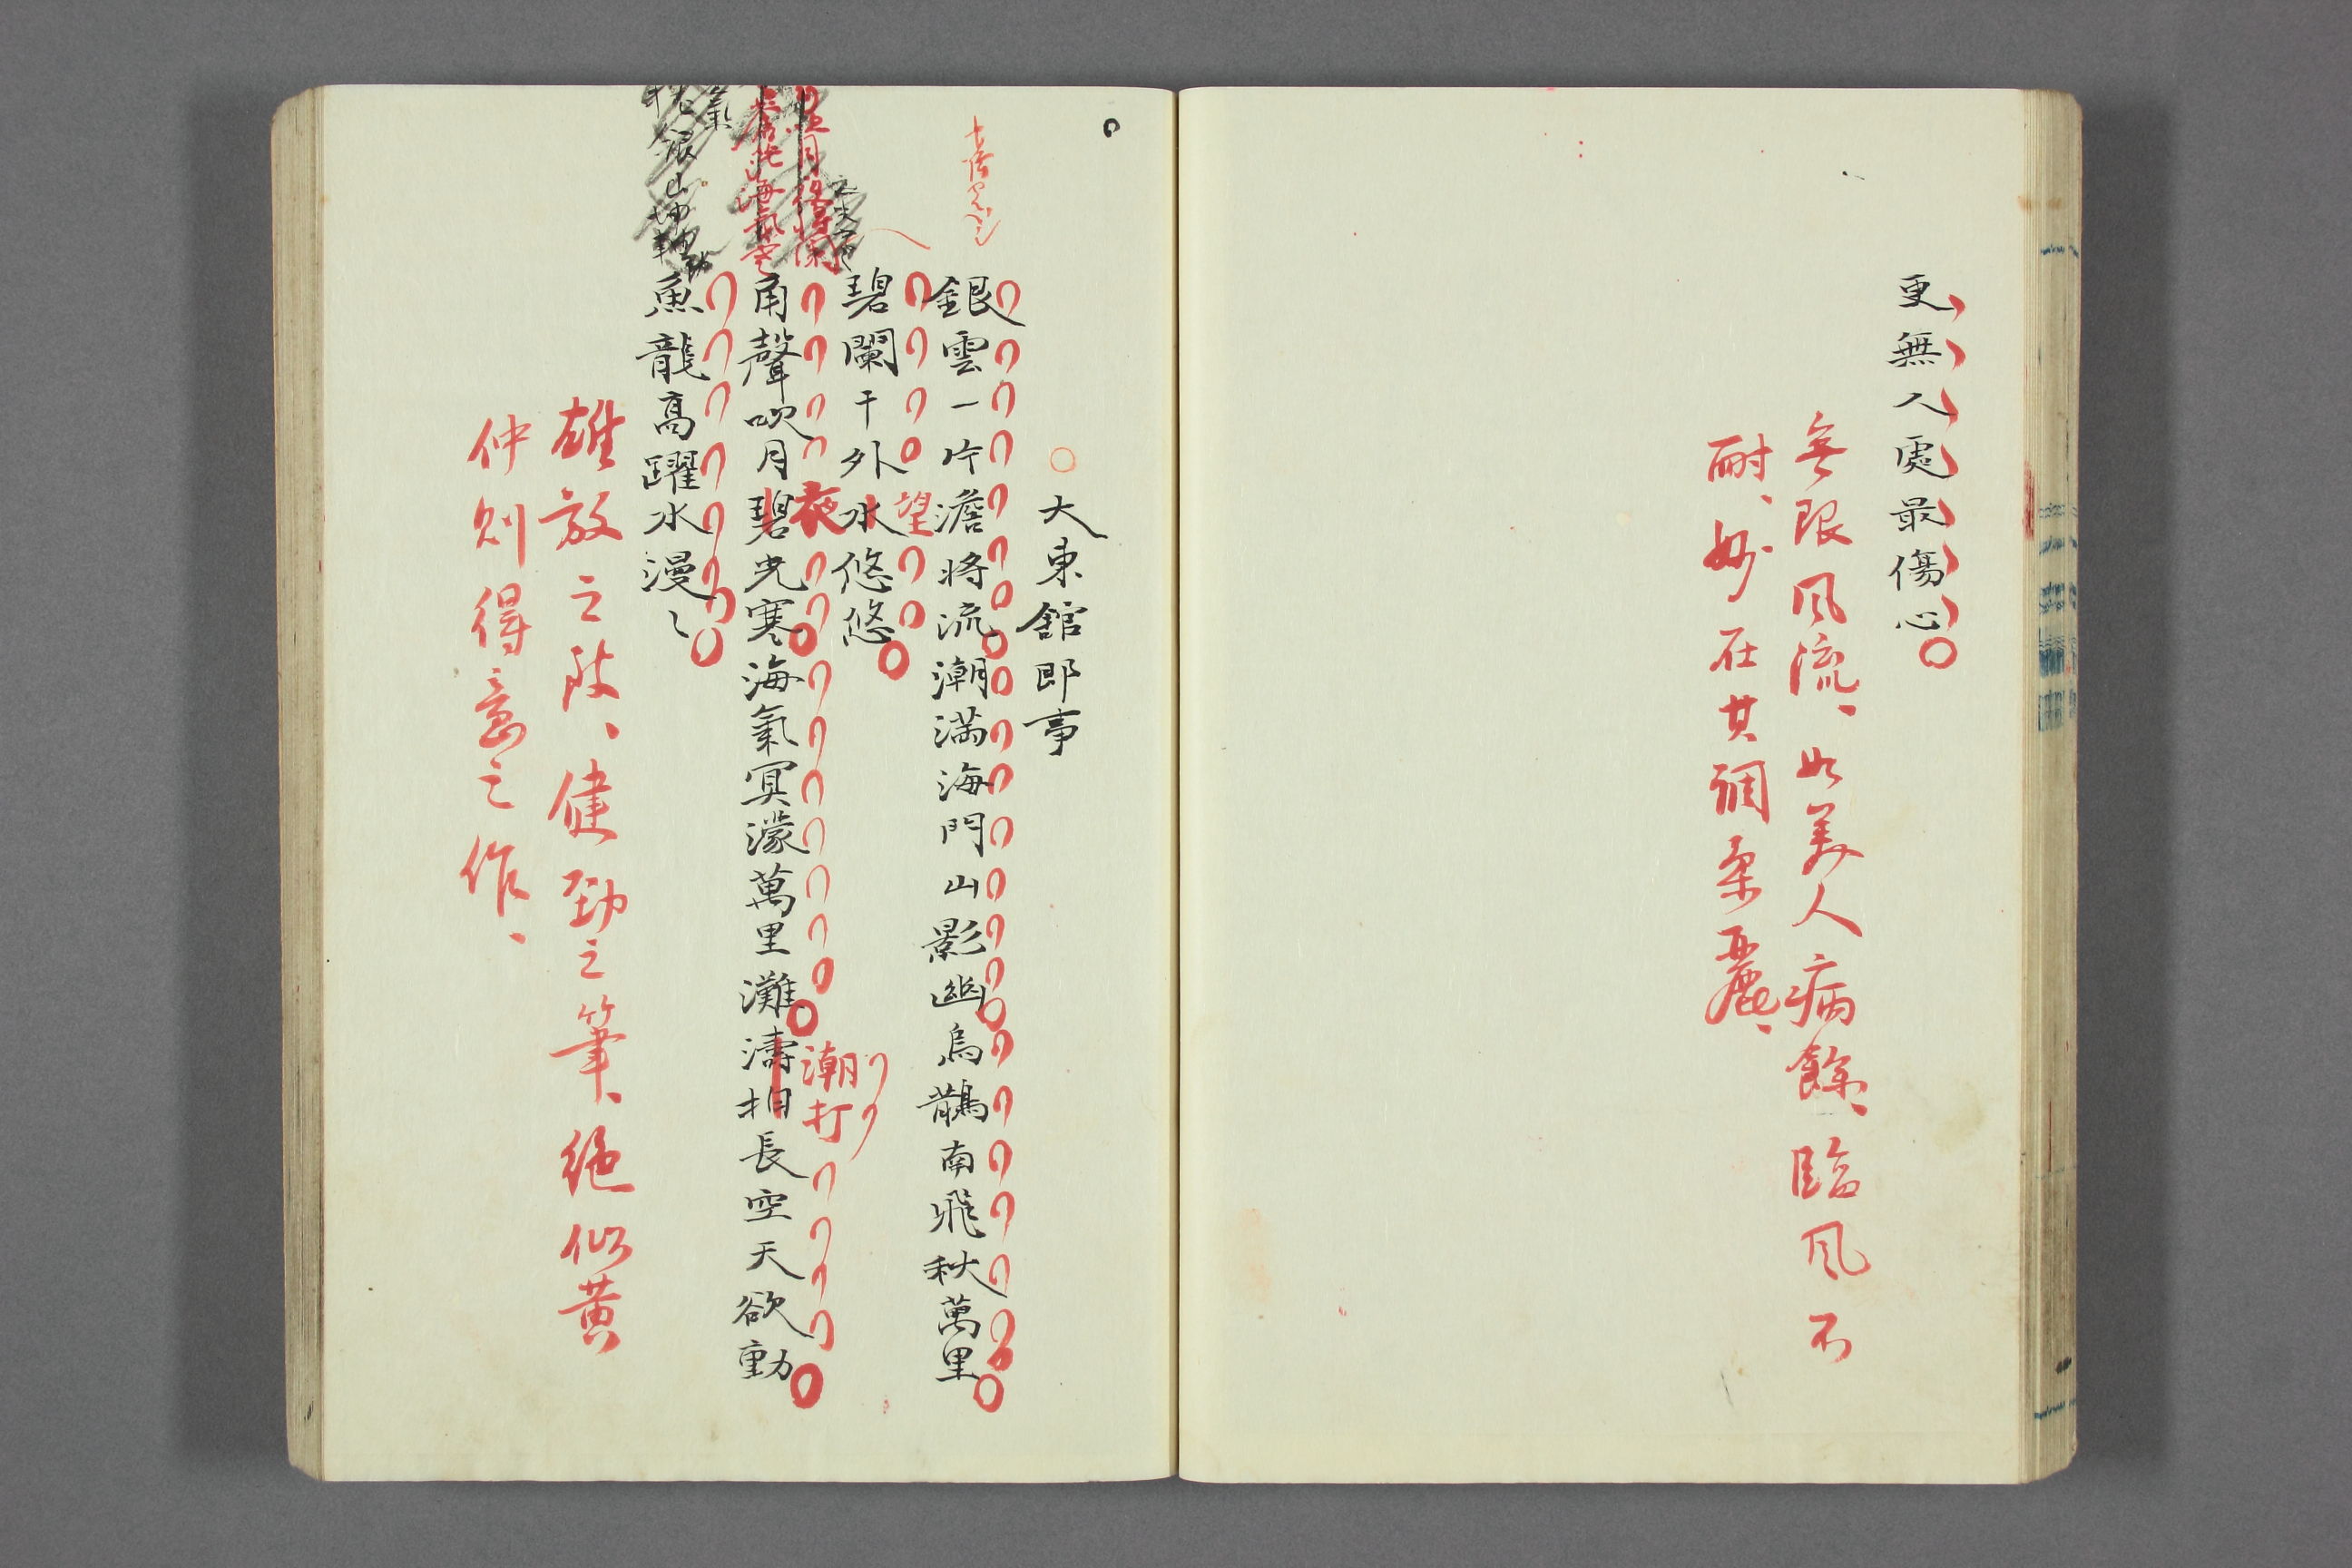 更無人處最傷心
無限風流、如美人病餘、臨風不
耐、妙在其調柔麗、
大東館即事
銀雲一片澹將流潮満海門山影幽烏鵲南飛秋萬里
望
碧闌干外水悠悠
夜
潮打
角聲吹月碧光寒海氣冥濛萬里灘濤相長空天欲動
氣
銀山坤軸
魚龍高躍水漫〻
雄放之致、健勁之筆、絶似黄
仲則得意之作、